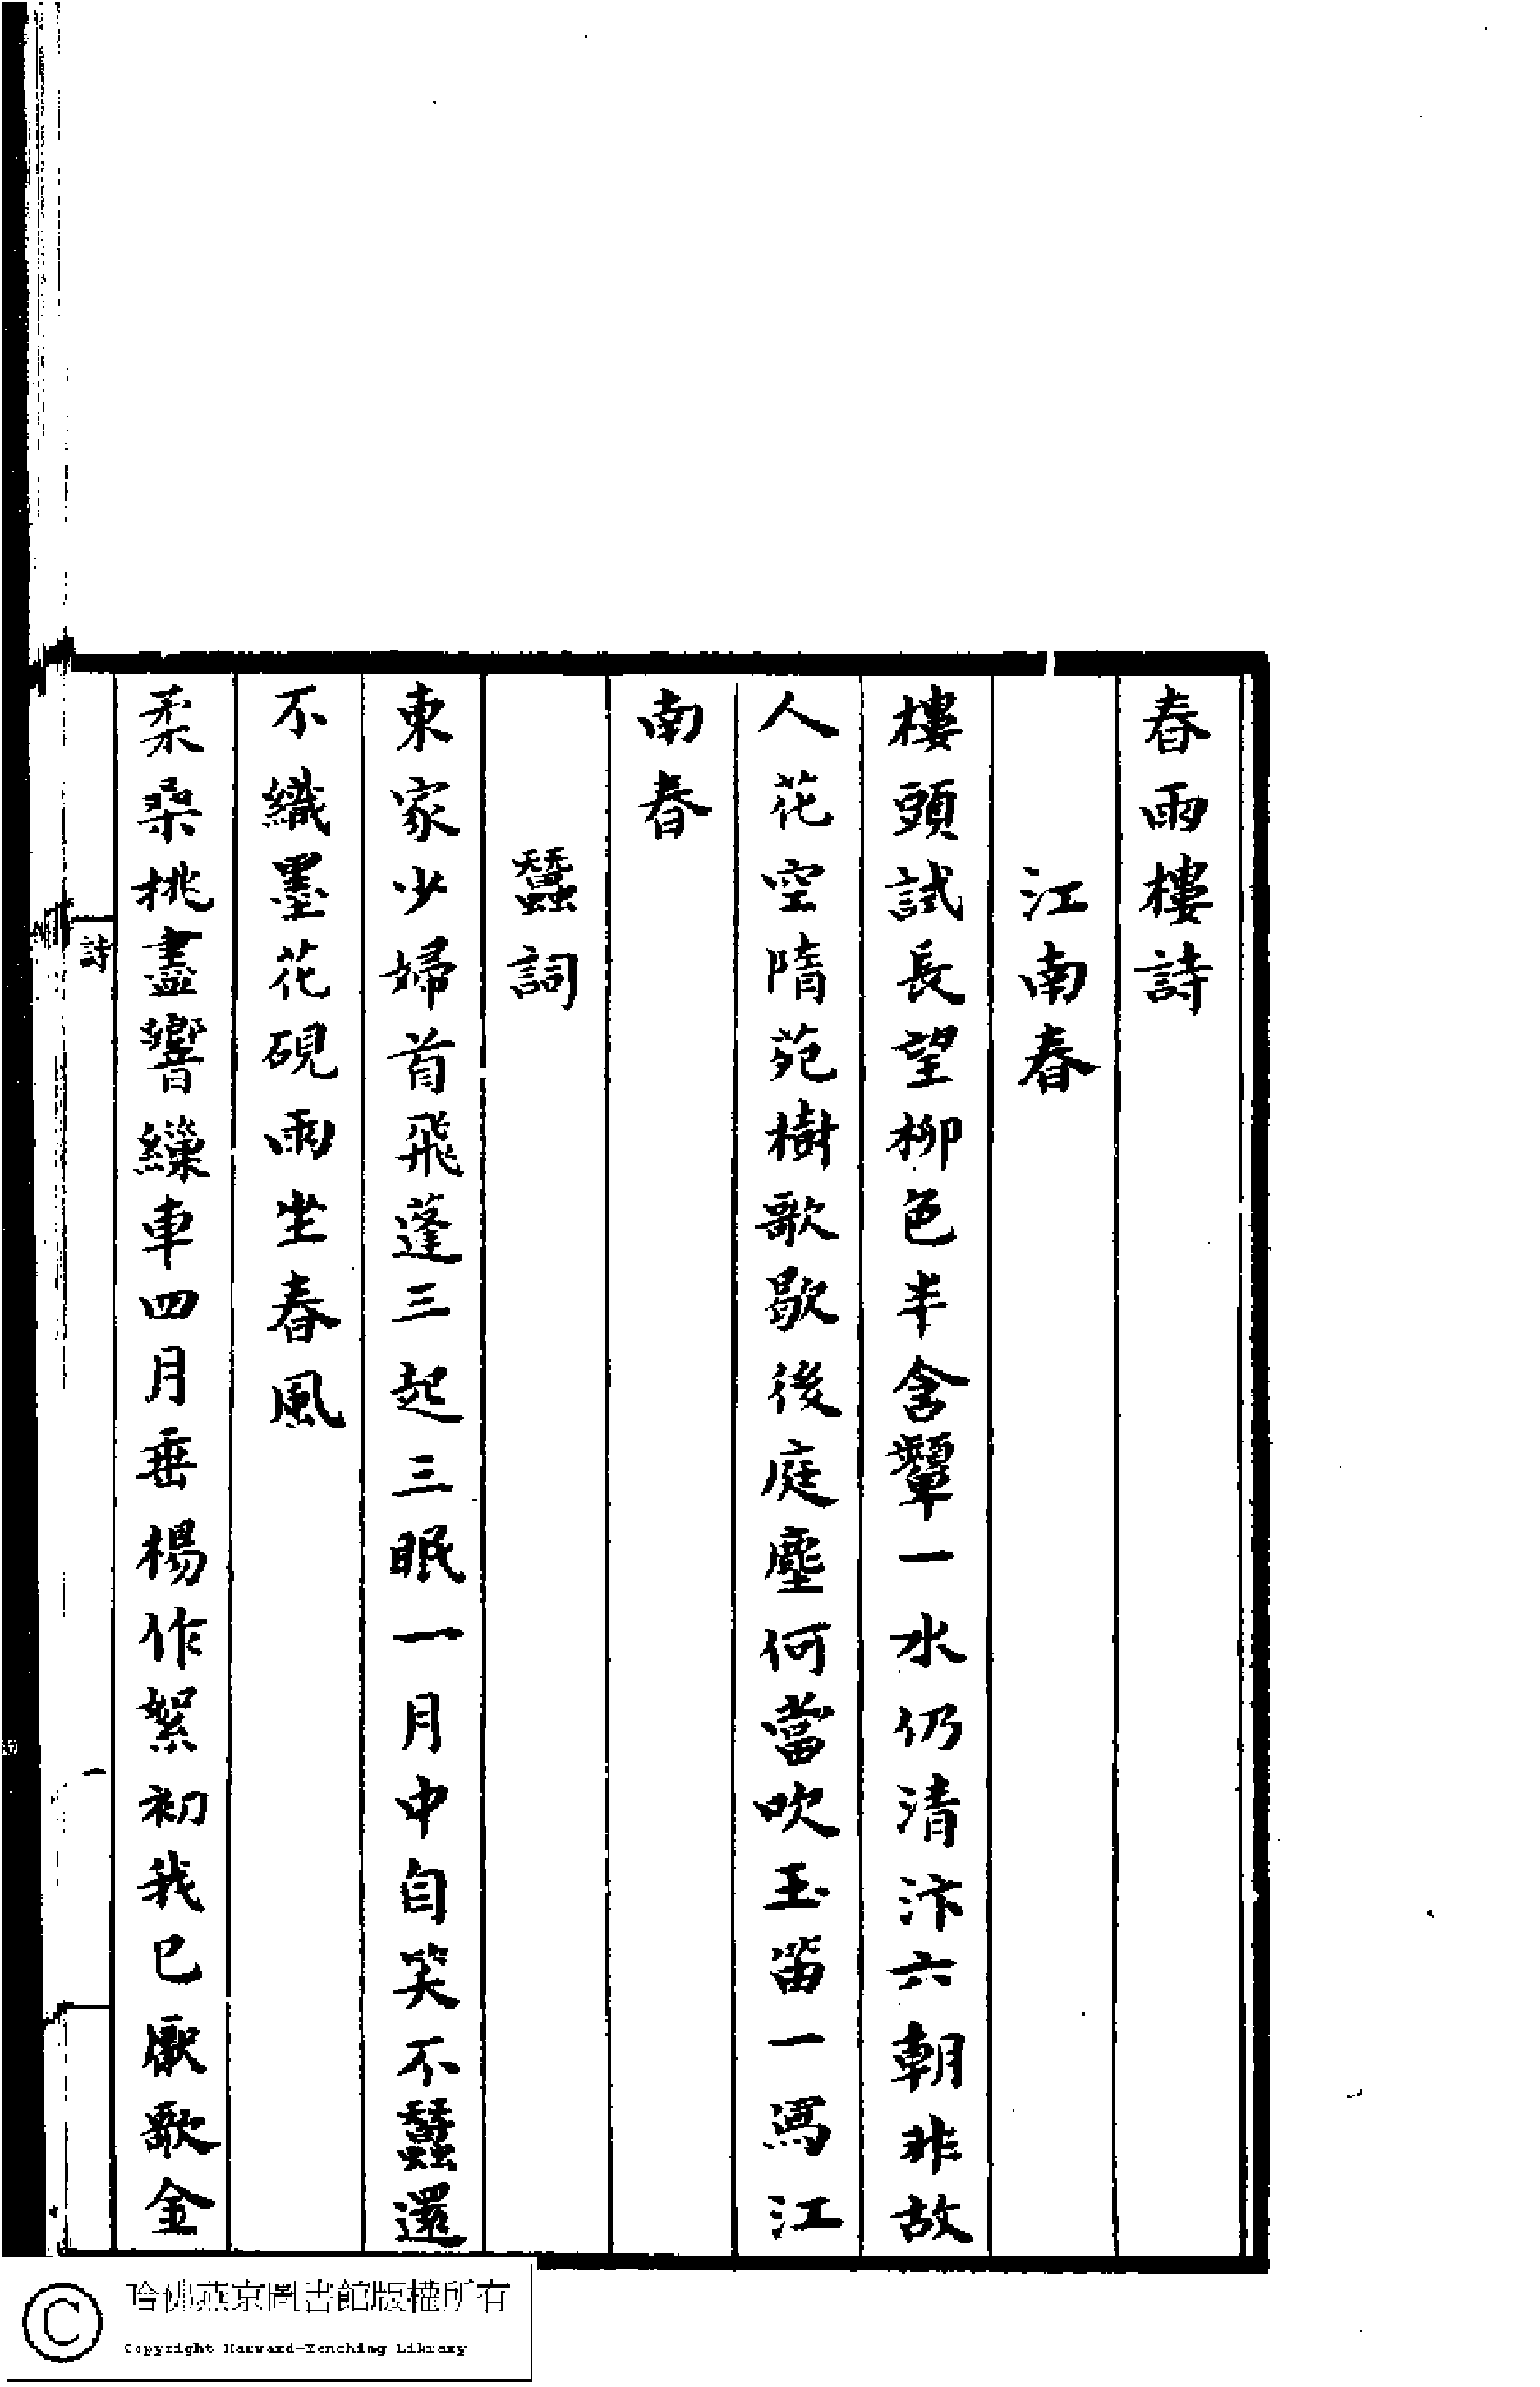 春雨樓詩
江南春
樓頭試長望柳色半含顰一水仍清汴六朝非故
人花空隋苑樹歌歇後庭塵何當吹玉笛一寫江
南春
蠶詞
東家少婦首飛蓬三起三眠一月中自笑不蠶還
不織墨花硯雨坐春風
柔桑挑盡響繅車四月垂楊作絮初我已厭歌金
詩
一
哈佛燕京圖書館版權所有
Copyright Harvard-Yenching Library